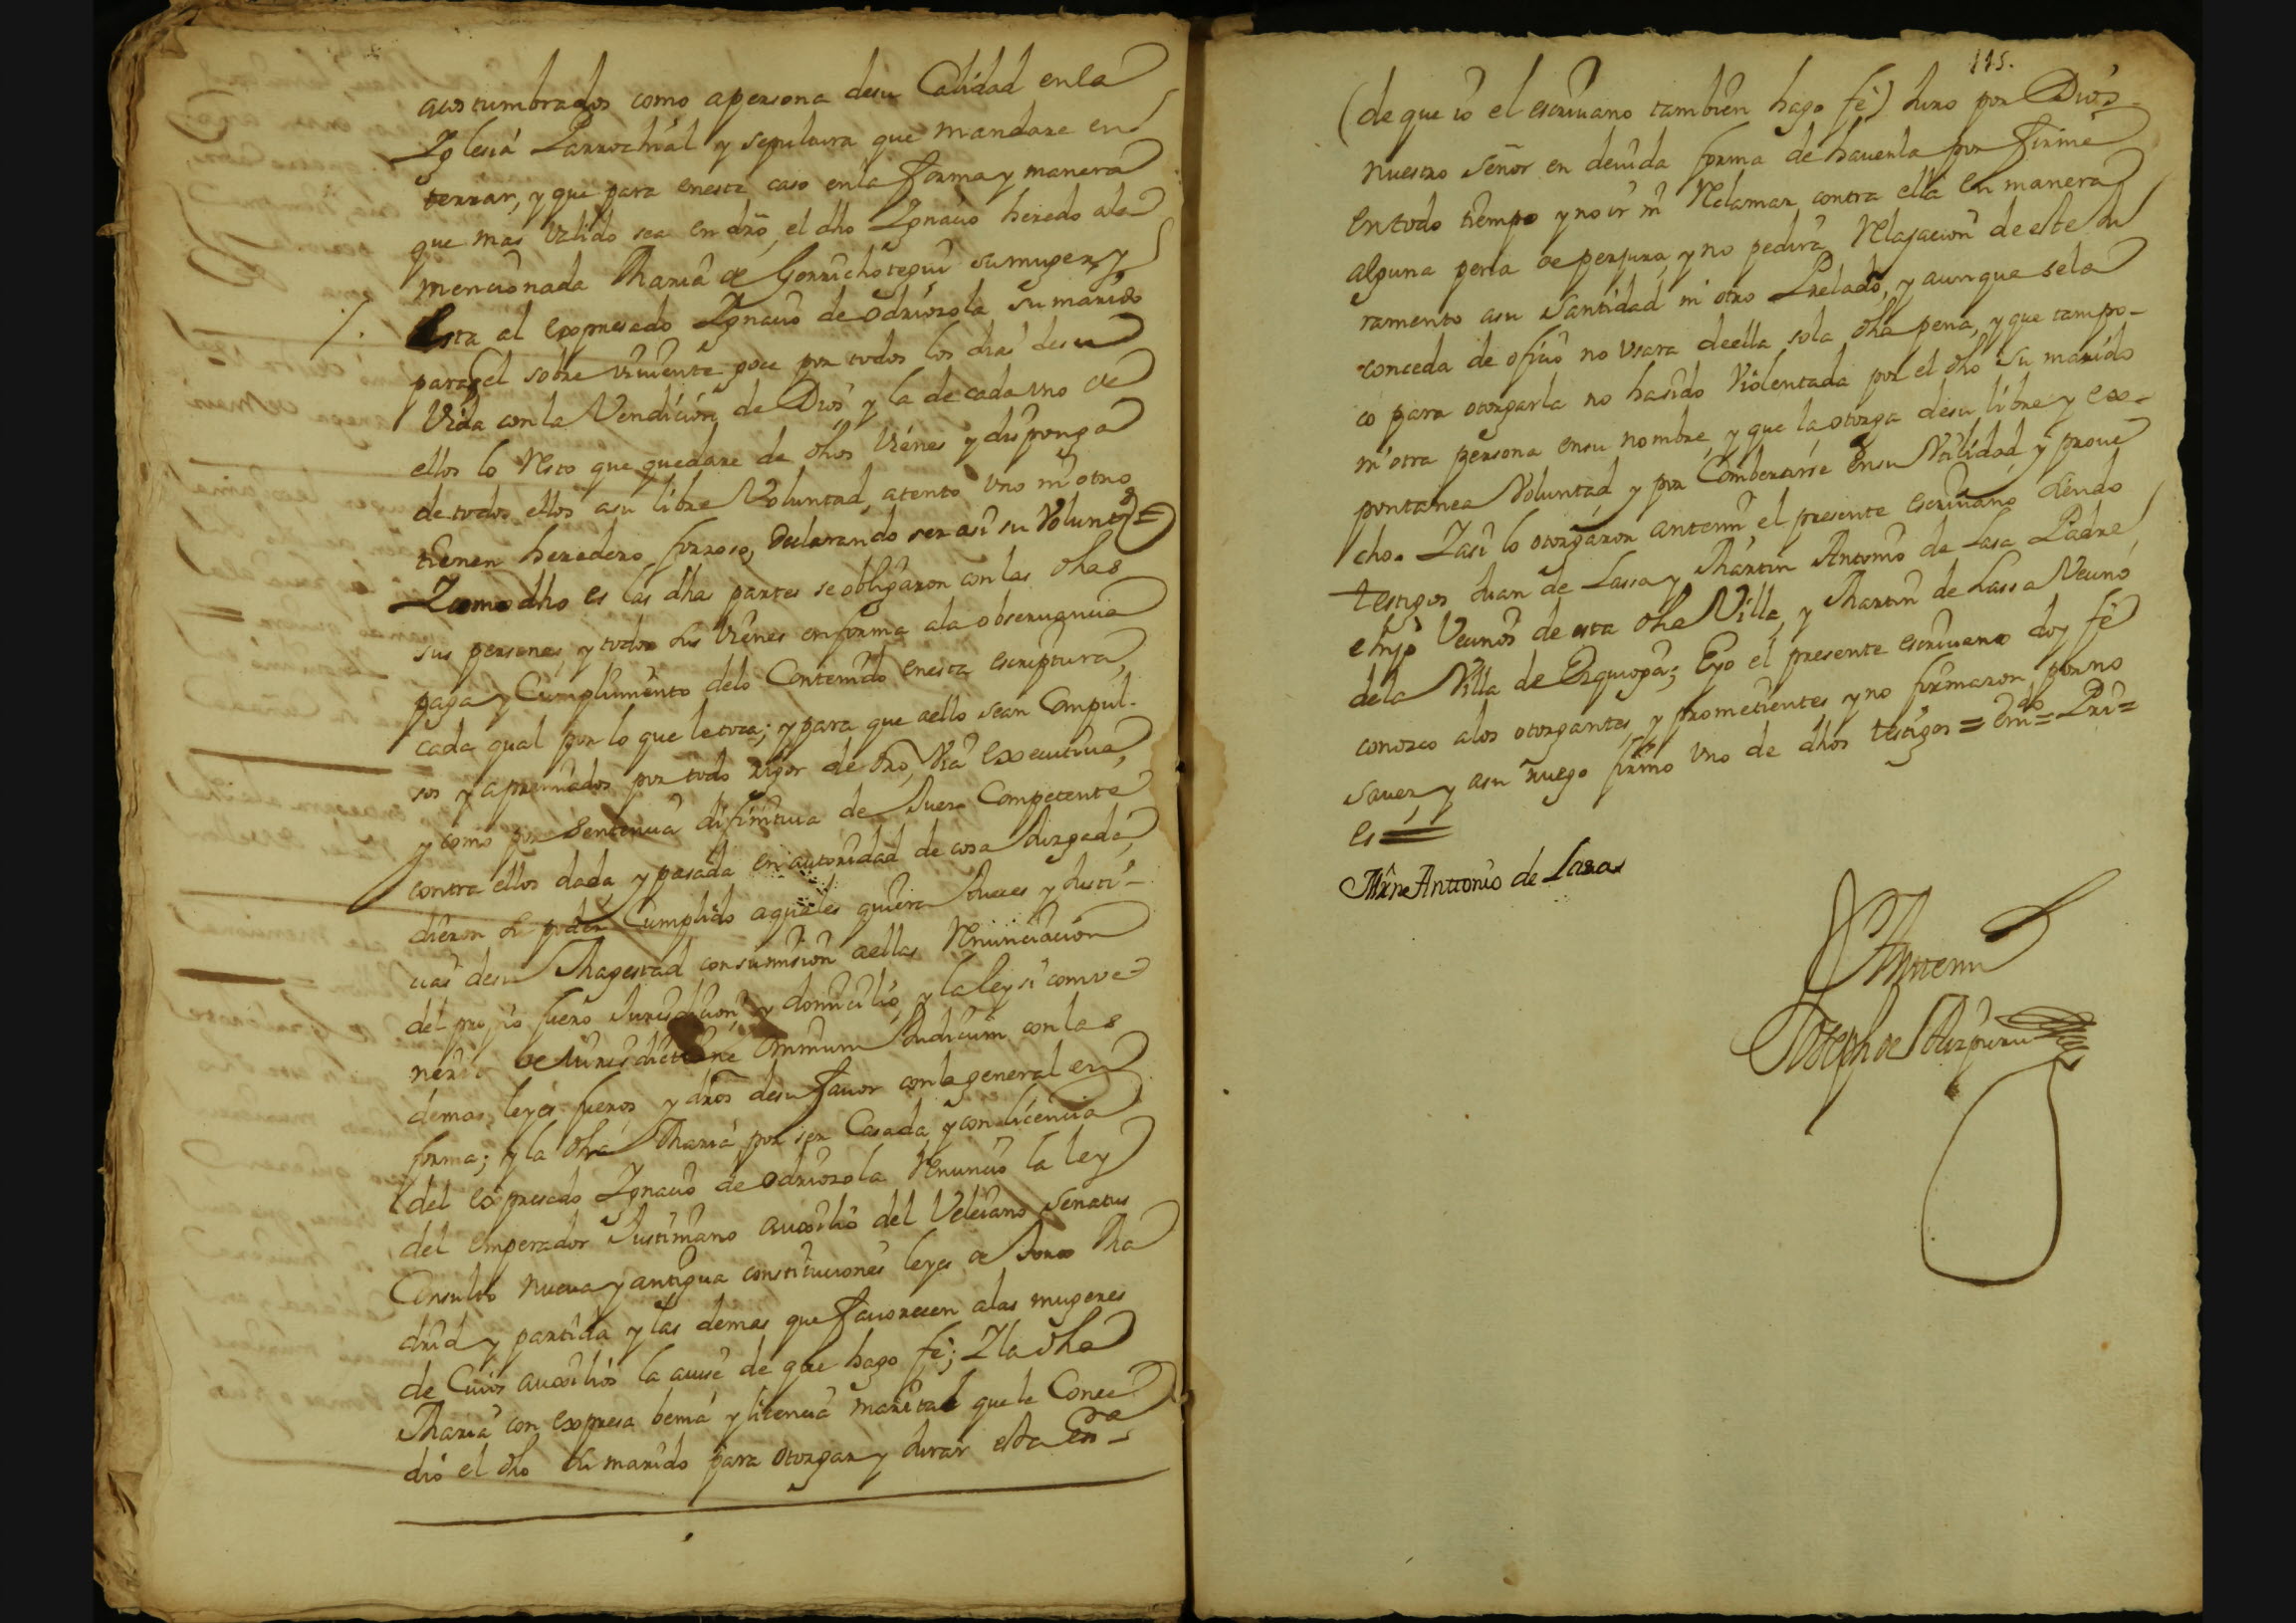 acostumbrados como apersona desu Calidad enla
Iglesia Parrochial y sepultura que mandare en
terrar, y que para eneste caso enla forma y manera
que mas valido sea en dro, el dho Ignacio heredo ala
mencionada Maria de Gorrichategui sumuger, y
esta al expresado Ignacio de Odriozola su marido
paraqel sobre viuiente goce por todos los dias desu
Vida conla Vendicion de Dios y la de cada uno de
ellos lo Resto que quedare de dhos Vienes y disponga
de todos ellos asu libre Voluntad, atento Uno ni otro
tienen heredero forzoso, declarando ser asi su Voluntd=
Icomo dho es las dhas partes se obligaron con las dhas
sus personas, y todos sus Vienes enforma ala obseruancia
paga y Cumplimiento delo Contenido enesta escriptura,
cada qual por lo que letoca; y para que aello sean Compul-
sos y apremiados por todo rigor de dro, Via executiua,
y como por Sentencia difinitiua de Juez Competente
contra ellos dada y pasada en autoridad de cosa Juzgada,
dieron su poder Cumplido aqueles quiera Jueces y Justi-
cias desu Magestad consumision aellas Renunciacion
del propio fuero Jurisdicion y domicilio, y la ley si conue
nerit de Jurisdictione omnium Judicum con las
demas leyes fueros y dros desu fauor conla general en
forma; y la dha Maria por ser Casada y con licencia
del expresado Ignacio de Odriozola Renuncio la ley
del emperador Justiniano auxilio del Veleiano Senatus
Consulto nueua y antigua constituciones leyes de Toro Ma
drid y partida y las demas que fauorecen alas mugeres
de Cuios auxilios la auise de que hago fe; Ila dha
Maria con expresa benia y licencia marital que le Conce
dio el dho su marido para otorgar y Jurar esta Esra
115.
(de que io el escriuano tambien hago fe) Juro por Dios
nuestro Señor en deuida forma de hauerla por firme
entodo tiempo y no ir ni Reclamar contra ella en manera
alguna pena de perjura, y no pedira Relajacion de este Ju
ramento asu Santidad ni otro Prelado, y aunque sela
conceda de oficio no Vsara deella sola dha pena, y que tampo-
co para otorgarla no hasido Violentada por el dho su marido
ni otra persona ensu nombre, y que la otorga desu libre y ex-
pontanea Voluntad, y por Combertirse ensu Vtilidad y proue
cho. Iasi lo otorgaron antemi, el presente escriuano siendo
Testigos Juan de Lassa y Martin Antonio de Lasa Padre
e hijo Vecinos de esta dha Villa, y Martin de Lassa Vecino
dela Villa de Ezquioga; Eyo el presente escriuano doy fe
conozco alos otorgantes, y prometientes y no firmaron por no
Sauer, y asu ruego firmo Uno de dhos testigos = Emdo= Pri=
es=
Mrn Anttonio de Lasa
Antemi
Joseph de Aizpuru